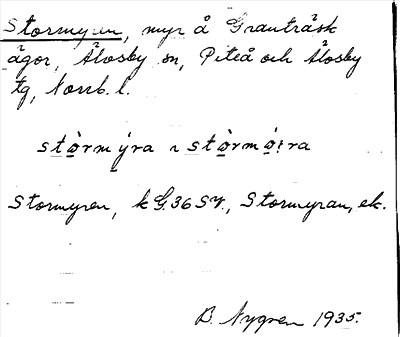 Stormyran, myr å Granträsk
ägor, Älvsby sn, Piteå och Älvsby
tg, Norrb. l.
stòrmýra ~ stòrmỳra
Stormyren, k G.36 SV., Stormyran, ek.
B. Nygren 1935.